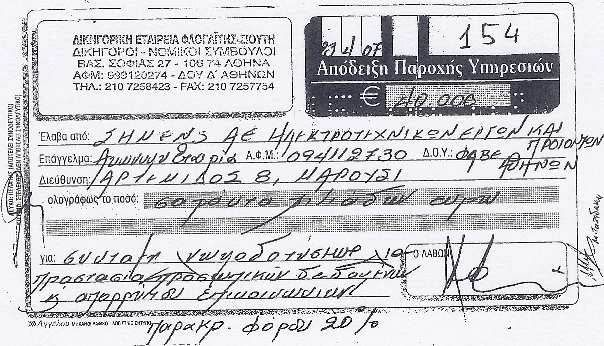 ΔΙΚΗΓΟΡΙΚΗ ΕΤΑΙΡΕΙΑ ΦΛΟΓΑΪΤΗΣ-ΣΙΟΥΤΗ
ΔΙΚΗΓΟΡΟΙ - ΝΟΜΙΚΟΙ ΣΥΜΒΟΥΛΟΙ
ΒΑΣ. ΣΟΦΙΑΣ 27 - 106 74 ΑΘΗΝΑ
ΑΦΜ: 999120274 - ΔΟΥ Δ΄ ΑΘΗΝΩΝ
ΤΗΛ.: 210 7258423 - FAX: 210 7257754
4 07
154
Απόδειξη Παροχής Υπηρεσιών
€ 40.000
Έλαβα από: ΣΗΜΕΝS ΑΕ ΗΛΕΚΤΡΟΤΕΧΝΙΚΩΝ ΕΡΓΩΝ ΚΑΙ ΠΡΟΙΟΝΤΩΝ
Επάγγελμα: Ανώνυμη Εταιρία Α.Φ.Μ.: 094112730 Δ.Ο.Υ.: ΦΑΒΕ ΑΘΗΝΩΝ
Διεύθυνση: ΑΡΤΕΜΙΔΟΣ 8, ΜΑΡΟΥΣΙ
ολογράφως το ποσό: σαράντα χιλιάδων ευρώ
για: σύνταξη γνωμοδοτήσεων για
προστασία προσωπικών δεδομένων
κ απορρήτου επικοινωνιών
Ο ΛΑΒΩΝ
παρακρ. φόρου 20%